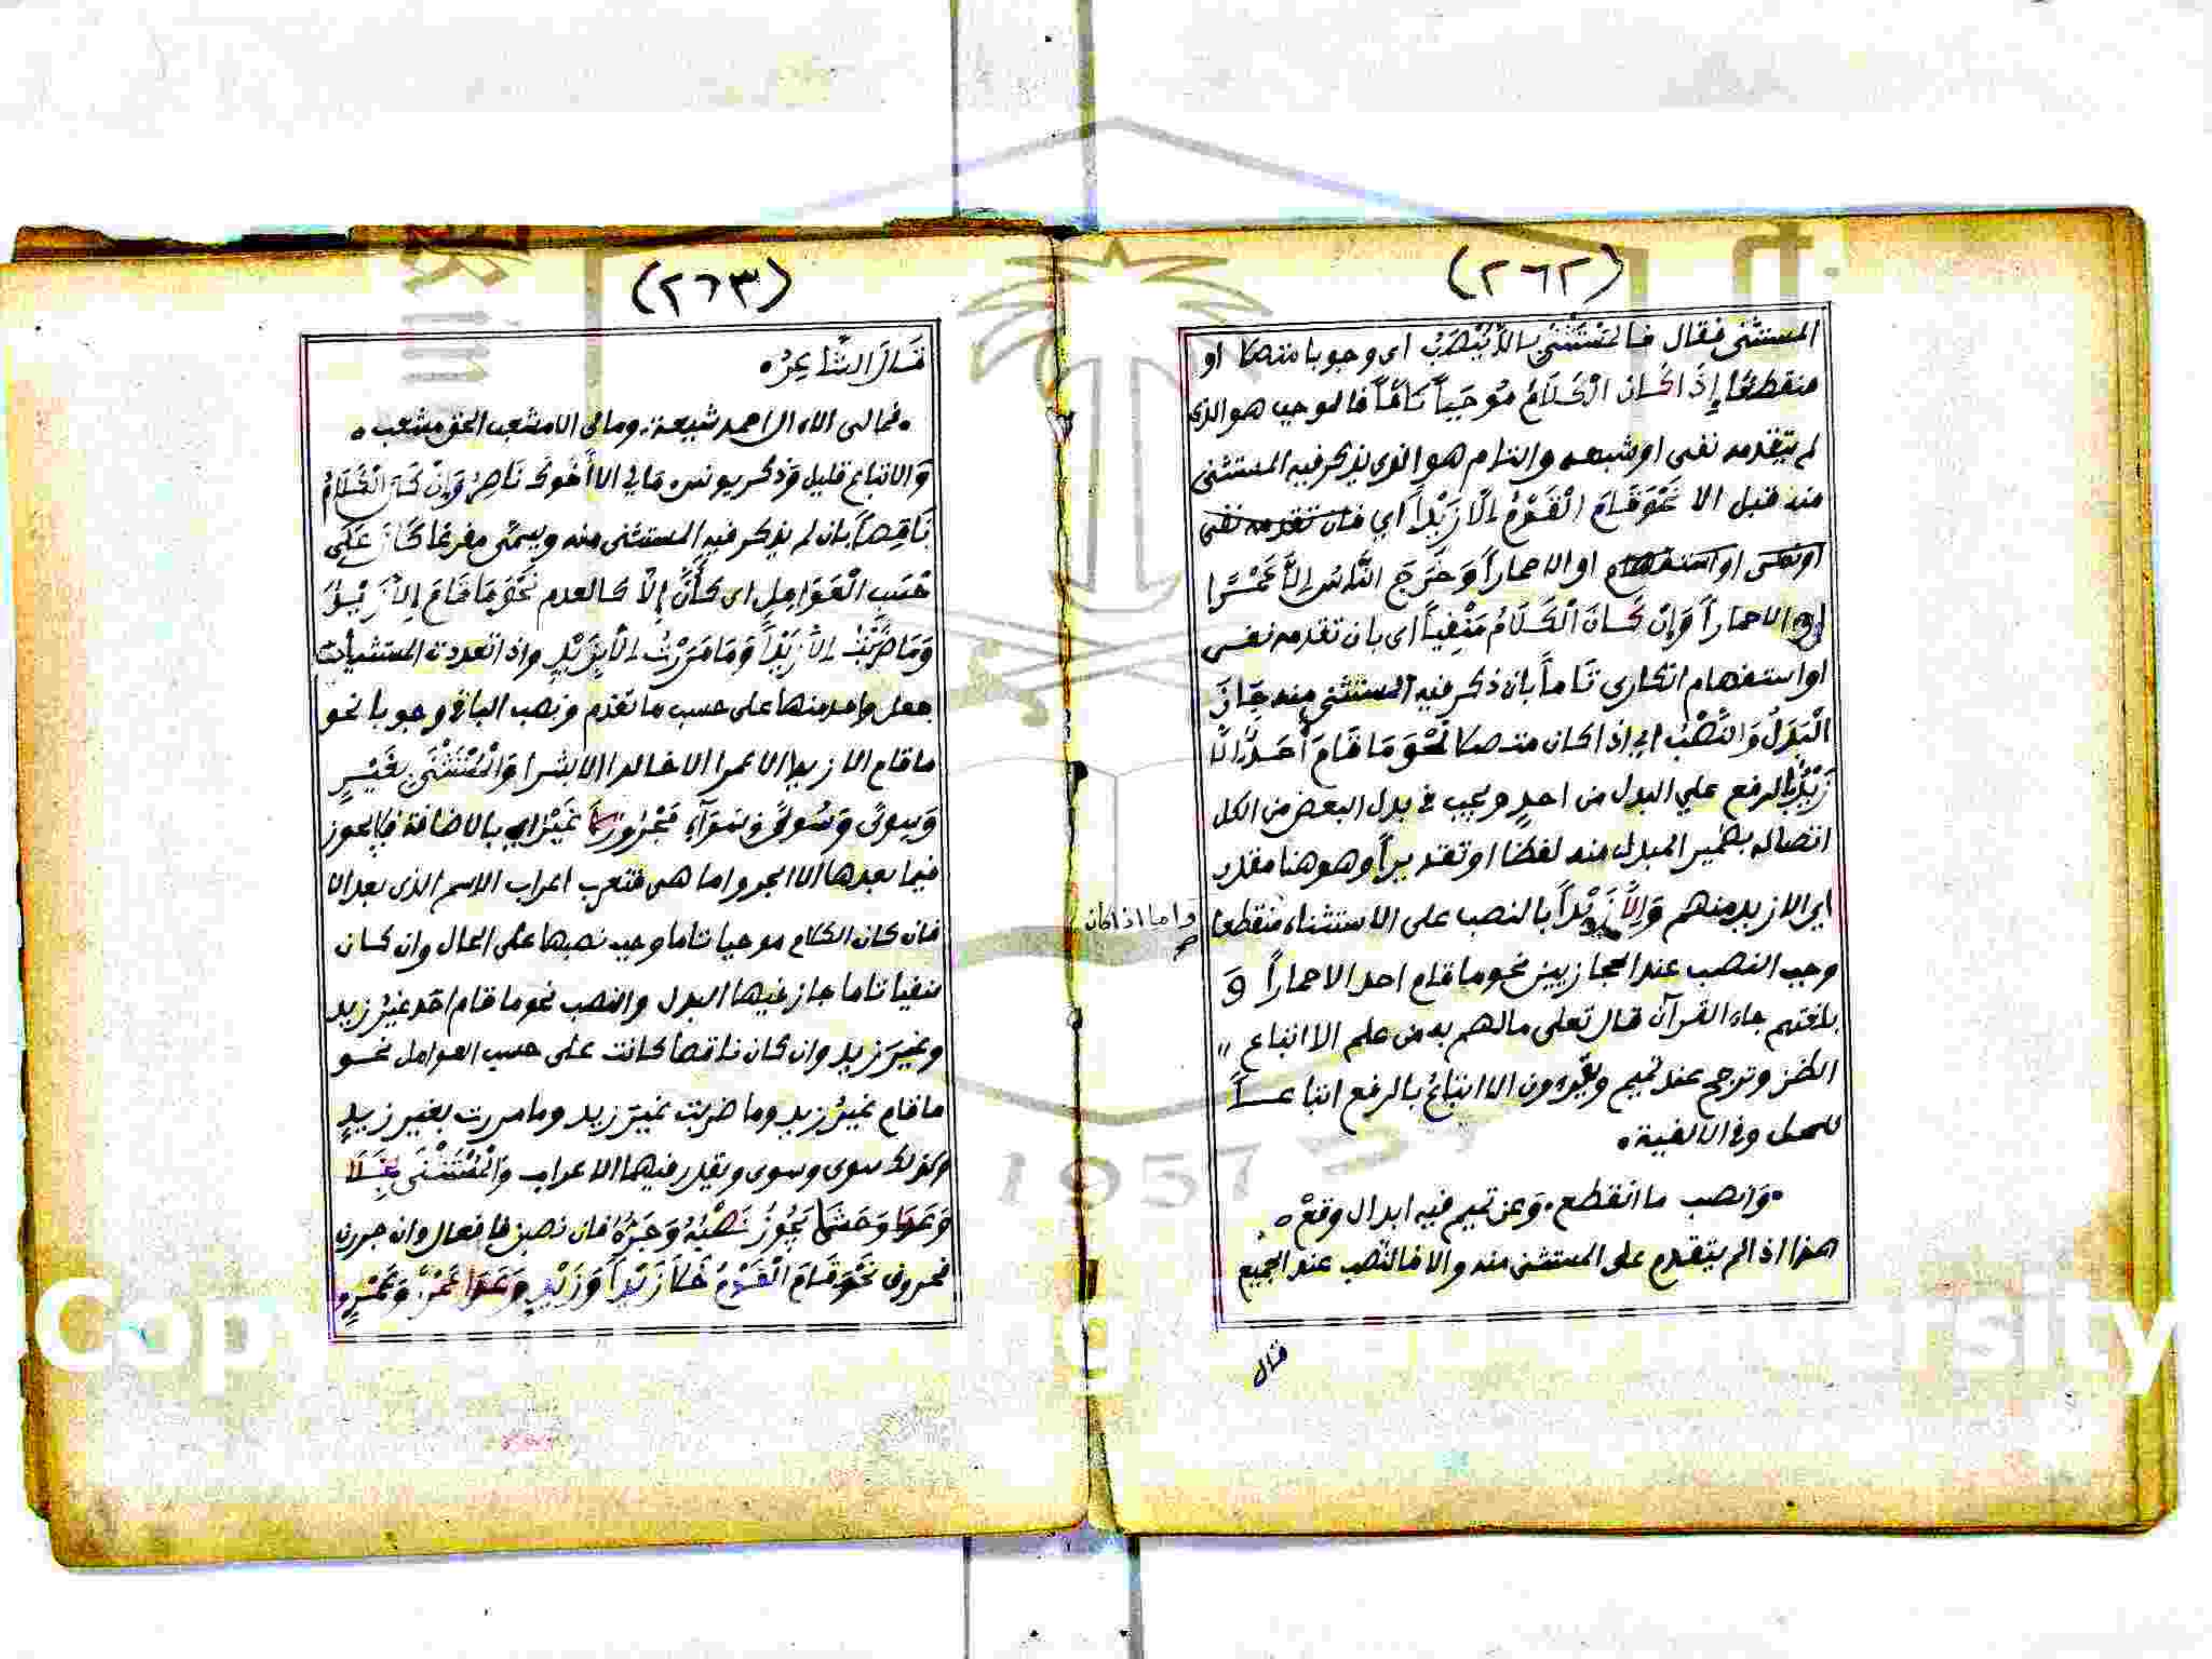 (٢٦٢)
المستثنى فقال فالمستثنى بالا يُنْصَبُ اى وجوبا متصلا او
منقطعا إِذَا كَانَ الْكَلَامُ مُوْجَباً تَامّاً فالموجب هو الذى
لم يتقدمه نفى او شبهه والتام هو الذى يذكر فيه المستثنى
منه قبل الا نَحْوَ قَامَ الْقَوْمُ إِلَّا زَيْداً اي فان تقدمه نفى
او نهى او استفهام او الا حماراً وَخَرَجَ النَّاسُ إِلَّا عَمْرًا
او الا حماراً وَإِنْ كَانَ الْكَلَامُ مَنْفِياً اى بان تقدمه نفى
او استفهام انكارى تَاماً بان ذكر فيه المستثنى منه جَازَ
الْبَدَلُ وَالنَّصْبُ اي اذا كان متصلا نَحْوَ مَا قَامَ أَحَدٌ إِلَّا
زَيْدٌ بالرفع علي البدل من احدٍ ويجب فى بدل البعض من الكل
اتصاله بضمير المبدل منه لفظا او تقديراً وهو هنا مقدر
اي الا زيد منهم وَإِلَّا زَيْداً بالنصب على الاستثناء منقطعا
واما اذا كان
وجب النصب عند الحجازيين نحو ما قام احد الا حماراً وَ
بلغتهم جاء القرآن قال تعلى مالهم به من علم الا اتباع "
الظن وترجح عند تميم ويقرءون الا اتباعُ بالرفع اتباعــاً
للمحل وفى الالفية ٠
٠ وَانصب ما انقطع ٠ وَعن تميم فيه ابدال وقعْ ٠
هذا اذا لم يتقدم على المستثنى منه والا فالنصب عند الجميع
قال
(٢٦٣)
قَالَ الشَّاعِرُ ٠
٠ فمالى الا ال احمد شيعة ٠ ومالى الا مشعب الحق مشعب ٠
وَالاتباع قليل وَذكر يونس ٠ مَا لِي الا أَخُوكَ نَاصِرٌ وَإِنْ كَانَ الْكَلَامُ
نَاقِصاً بان لم يذكر فيه المستثنى منه ويسمّى مفرغا كَانَ عَلَى
حَسَبِ الْعَوَامِلِ اى كَأَنَّ إِلَّا كالعدم نَحْوَ مَا قَامَ إِلَّا زَيْدٌ
وَمَا ضَرَبْتُ إِلَّا زَيْداً وَمَا مَرَرْتُ إِلَّا بِزَيْدٍ واذا تعددت المستثنيات
جعل واحد منها على حسب ما تقدم ونصب الباقى وجوبا نحو
ما قام الا زيد الا عمرا الا خالدا الا بشرا وَالْمُسْتَثْنَى بِغَيْرٍ
وَسِوىً وَسُوىً وَسَوَآءٍ مَجْرُورٌ غَيْرُ اي بالاضافة فلا يجوز
فيما بعدها الا الجر واما هى فتعرب اعراب الاسم الذى بعد الا
فان كان الكلام موجبا تاما وجب نصبها على الحال وان كان
منفيا تاما جاز فيها البدل والنصب نحو ما قام احد غيرُ زيد
وغيرَ زيد وان كان ناقصا كانت على حسب العوامل نحو
ما قام غيرُ زيد وما ضربت غيرَ زيد وما مررت بغير زيدٍ
وكذلك سوى وسوى ويقدر فيهما الاعراب وَالْمُسْتَثْنَى بِخَلَا
وَعَدَا وَحَشَا يَجُوزُ نَصْبُهُ وَجَرُّهُ فان نصبن فافعال وان جررن
فحروف نَحْوَ قَامَ الْقَوْمُ خَلَا زَيْداً وَزَيْدٍ وَعَدَا عَمْرًا وَعَمْرٍو